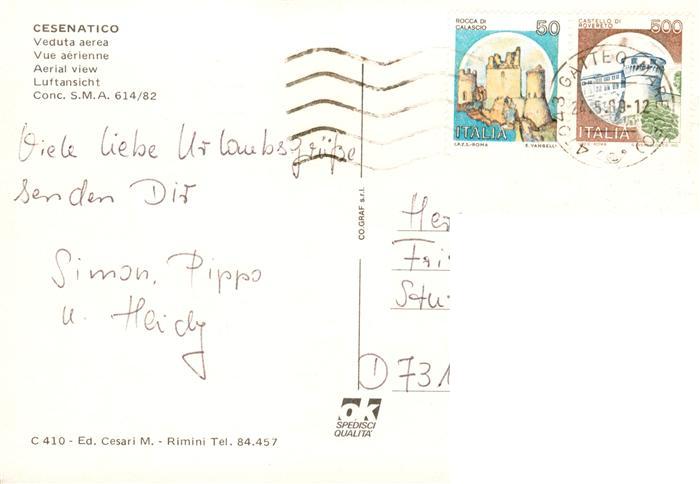 CESENATICO
Veduta aerea
Vue aérienne
Aerial view
Luftansicht
Conc. S.M.A. 614/82
ROCCA DI CALASCIO
50
ITALIA
I.P.Z.S.-ROMA E. VANGELLI
CASTELLO DI ROVERETO
500
ITALIA
GATTEO
Viele liebe Urlaubsgrüße
senden Dir
Simon, Pippo
u. Heidy
CO.GRAF s.r.l.
Her
Fri
Stu
D 731
ok
SPEDISCI
QUALITA'
C 410 - Ed. Cesari M. - Rimini Tel. 84.457